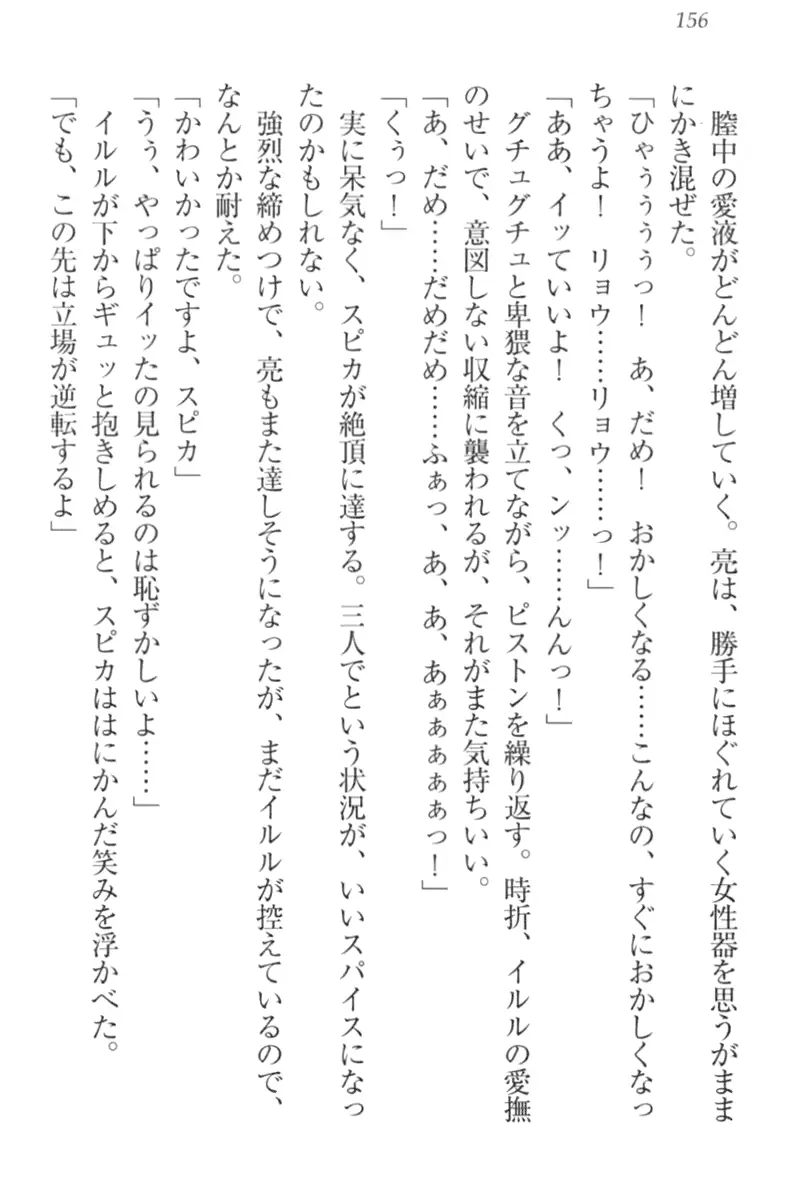 156
膣中の愛液がどんどん増していく。亮は、勝手にほぐれていく女性器を思うがまま
にかき混ぜた。
「ひゃぅぅぅぅっ！　あ、だめ！　おかしくなる……こんなの、すぐにおかしくなっ
ちゃうよ！　リョウ……リョウ……っ！」
「ああ、イッていいよ！　くっ、ンッ……んんっ！」
グチュグチュと卑猥な音を立てながら、ピストンを繰り返す。時折、イルルの愛撫
のせいで、意図しない収縮に襲われるが、それがまた気持ちいい。
「あ、だめ……だめだめ……ふぁっ、あ、あ、あぁぁぁぁぁっ！」
「くぅっ！」
実に呆気なく、スピカが絶頂に達する。三人でという状況が、いいスパイスになっ
たのかもしれない。
強烈な締めつけで、亮もまた達しそうになったが、まだイルルが控えているので、
なんとか耐えた。
「かわいかったですよ、スピカ」
「うぅ、やっぱりイッたの見られるのは恥ずかしいよ……」
イルルが下からギュッと抱きしめると、スピカははにかんだ笑みを浮かべた。
「でも、この先は立場が逆転するよ」